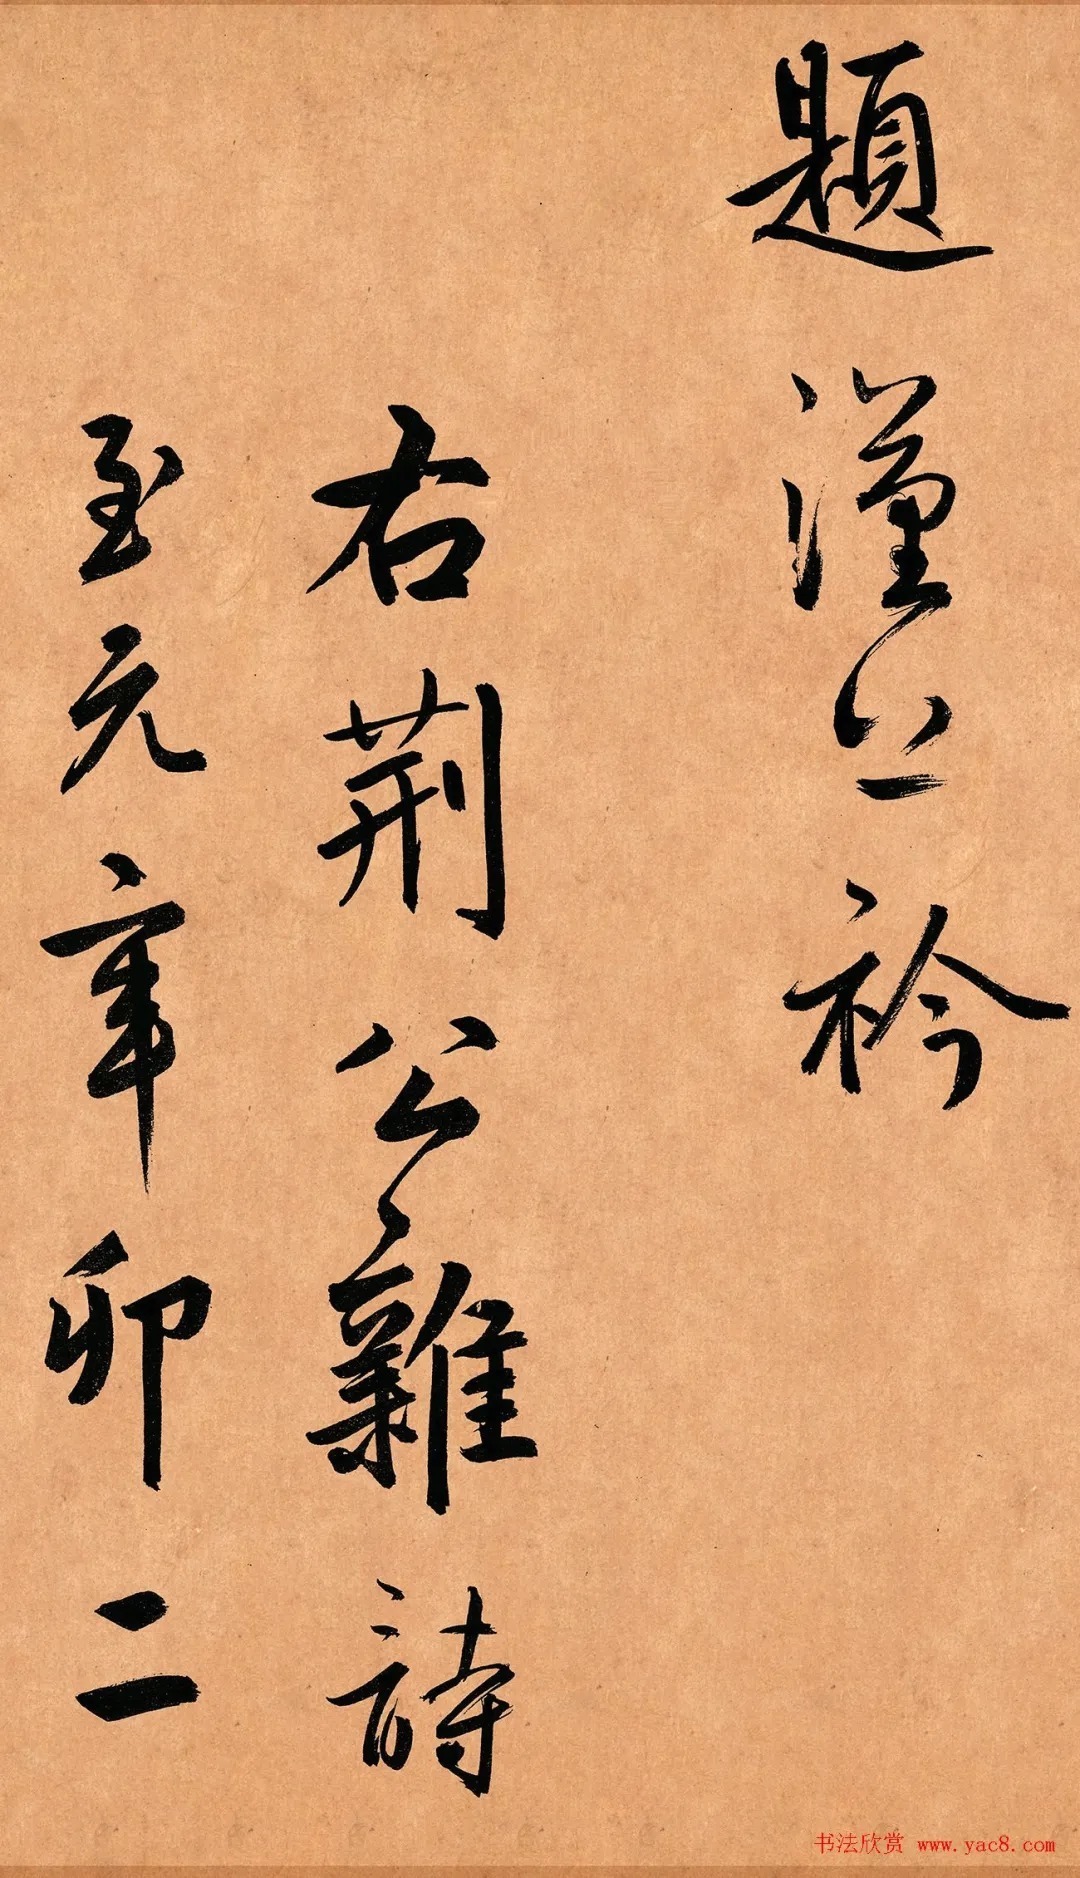 題衿
右荆公雜詩
至元辛卯二
书法欣赏 www.yac8.com